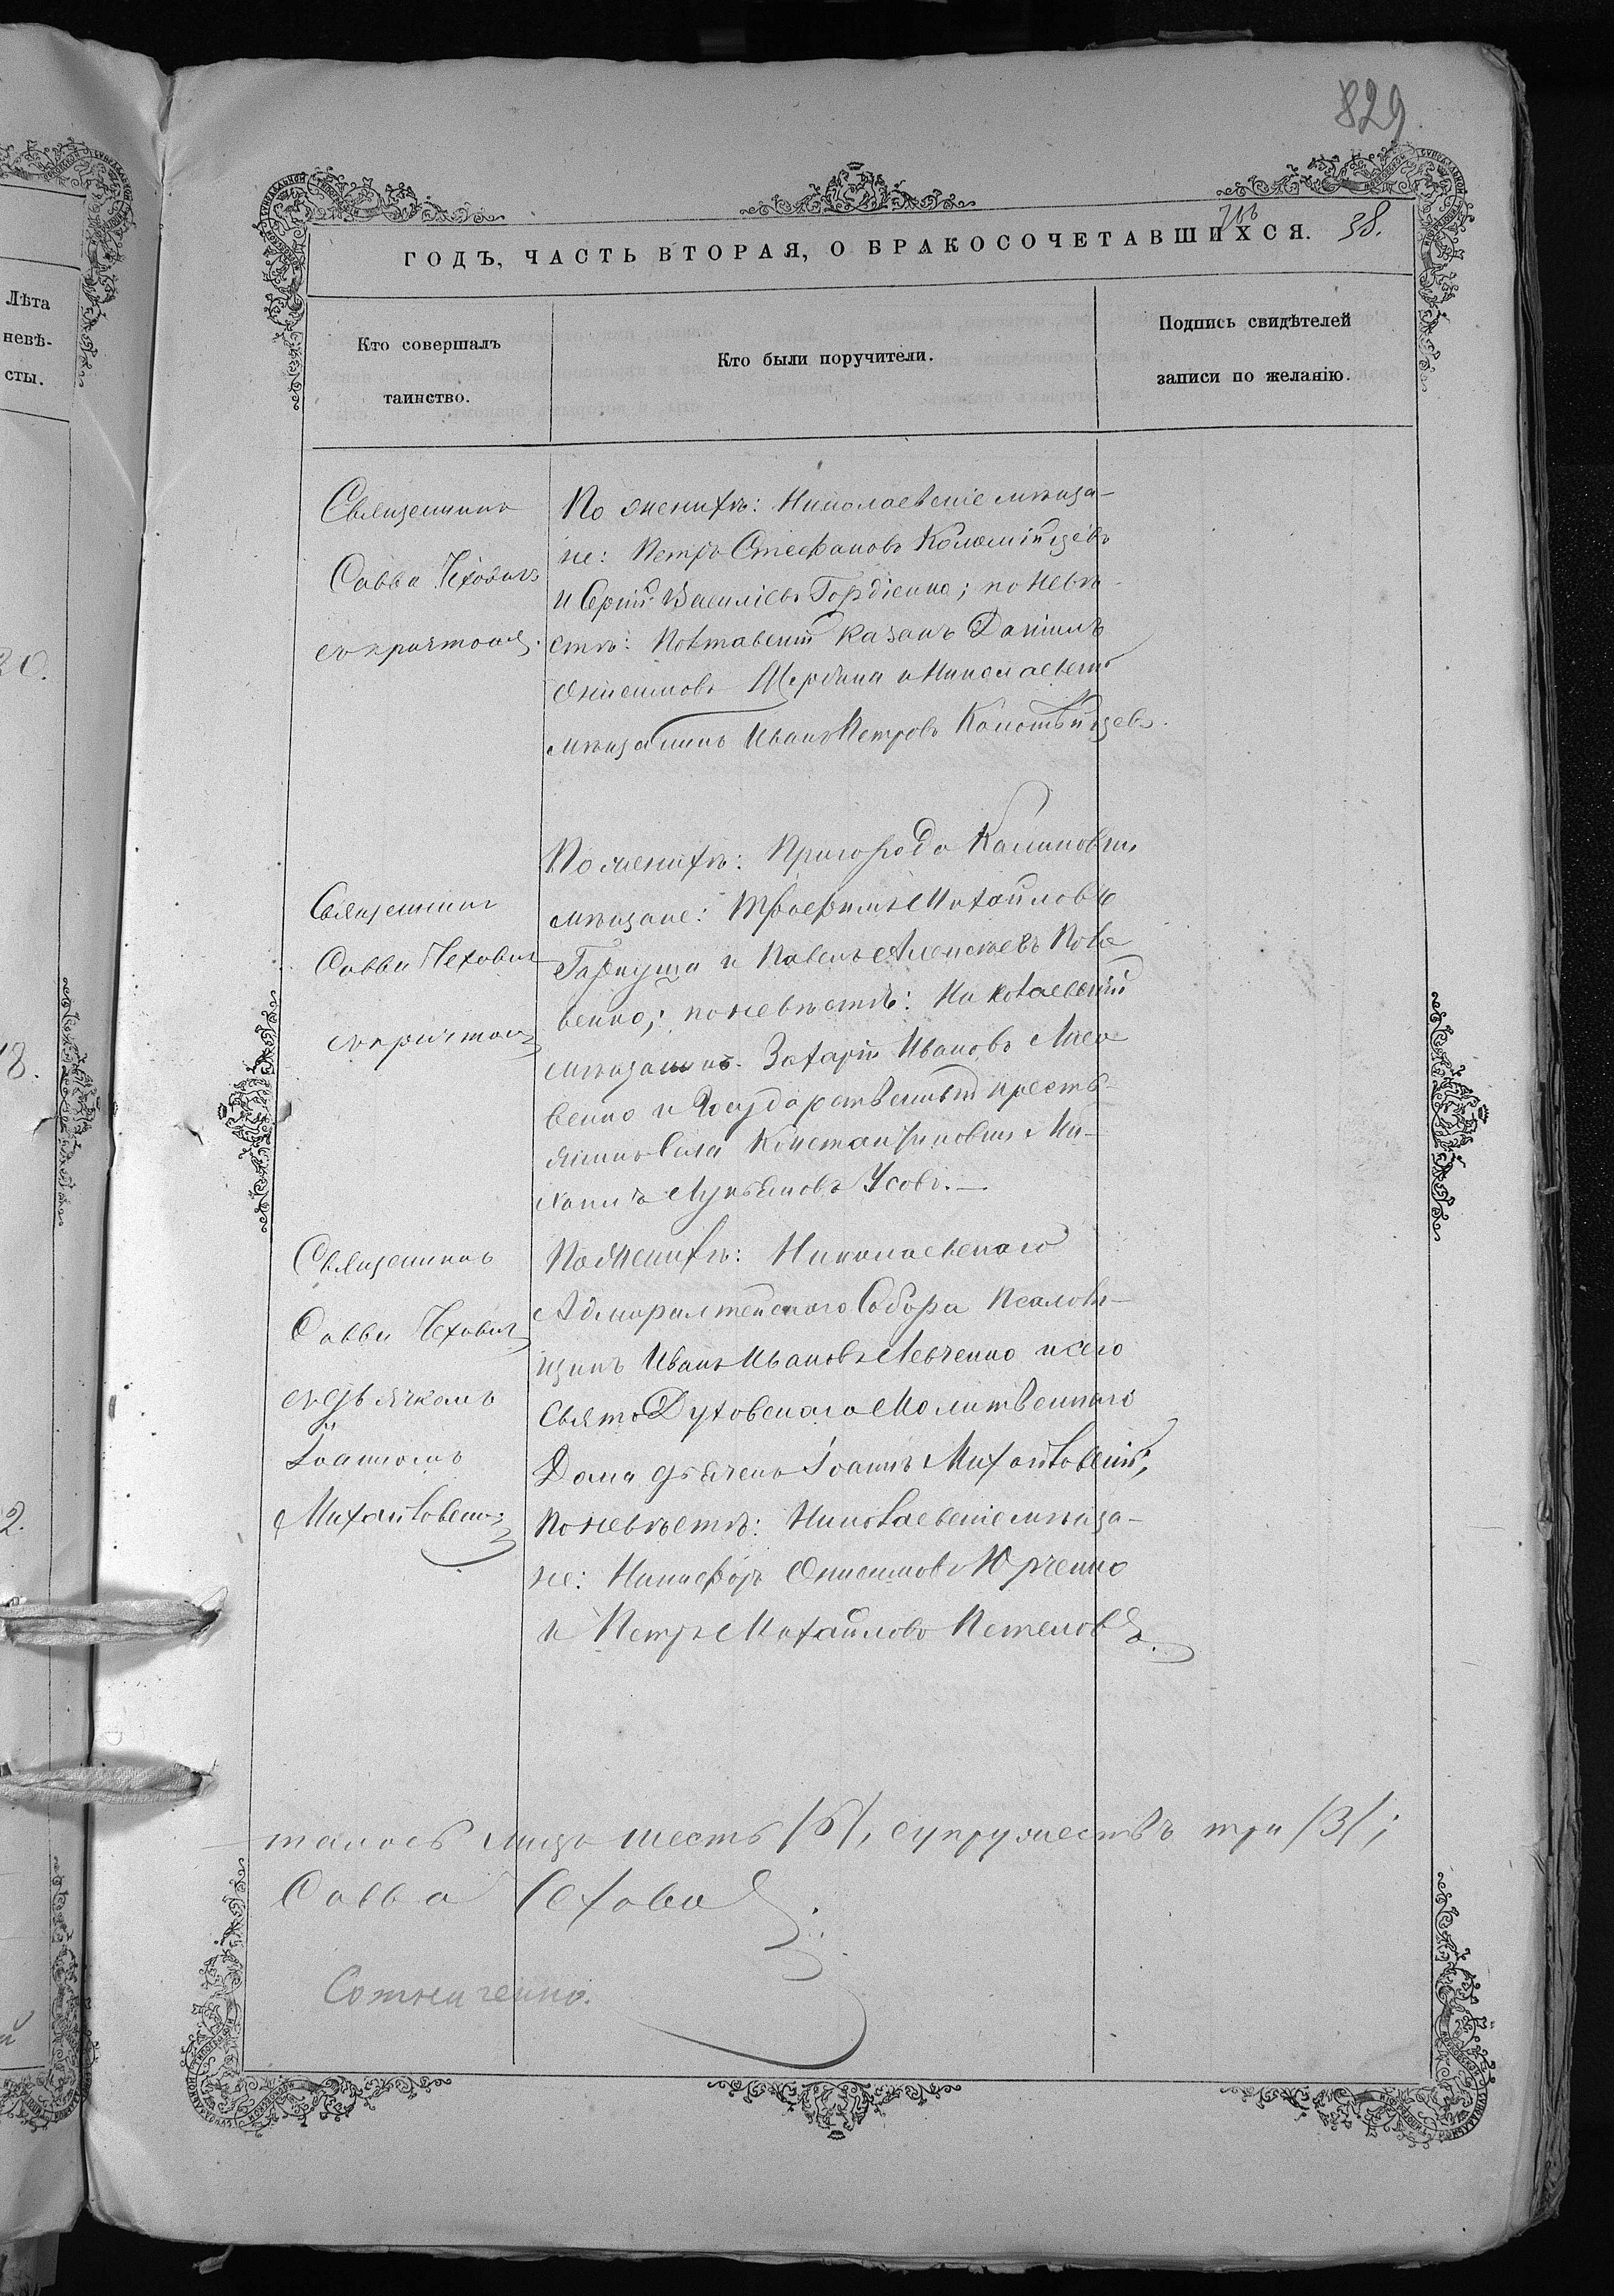 829
38.
ГОДЪ, ЧАСТЬ ВТОРАЯ, О БРАКОСОЧЕТАВШИХСЯ.
Лѣта
невѣ-
сты.
Кто совершалъ
таинство.
Кто были поручители.
Подпись свидѣтелей
записи по желанію.
Священникъ
Савва Чеховичъ
съ причтомъ.
По женихѣ: Николаевскіе мѣща-
не: Петръ Стефановъ Коломійцевъ
и Сергій Василіевъ Гордіенко; по невѣ-
стѣ: Полтавскій казакъ Даніилъ
Онисимовъ Щербина и Николаевскій
мѣщанинъ Иванъ Петровъ Коломѣйцевъ.
Священникъ
Савва Чеховичъ
съ причтомъ
По женихѣ: Пригорода Калиновки
мѣщане: Трофимъ Михайловъ
Гаркуша и Павелъ Алексѣевъ
по невѣстѣ: Николаевскій
мѣщанинъ Захарій Ивановъ
венко и Государственный кресть-
янинъ села Константиновки Ми-
хаилъ Лукьяновъ Усовъ.—
Священникъ
Савва Чеховичъ
съ дьячкомъ
Іоанномъ
По женихѣ: Николаевскаго
Адмиралтейскаго Собора Псалом-
щикъ Иванъ Ивановъ Левченко и сего
Свято Духовскаго Молитвеннаго
Дома дьячекъ Іоаннъ
по невѣстѣ: Николаевскіе мѣща-
не: Никифоръ Онисимовъ Юрченко
и Петръ Михайловъ
талось лицъ шесть /6/, супружествъ три /3/;
Савва Чеховичъ
20.
18.
2.